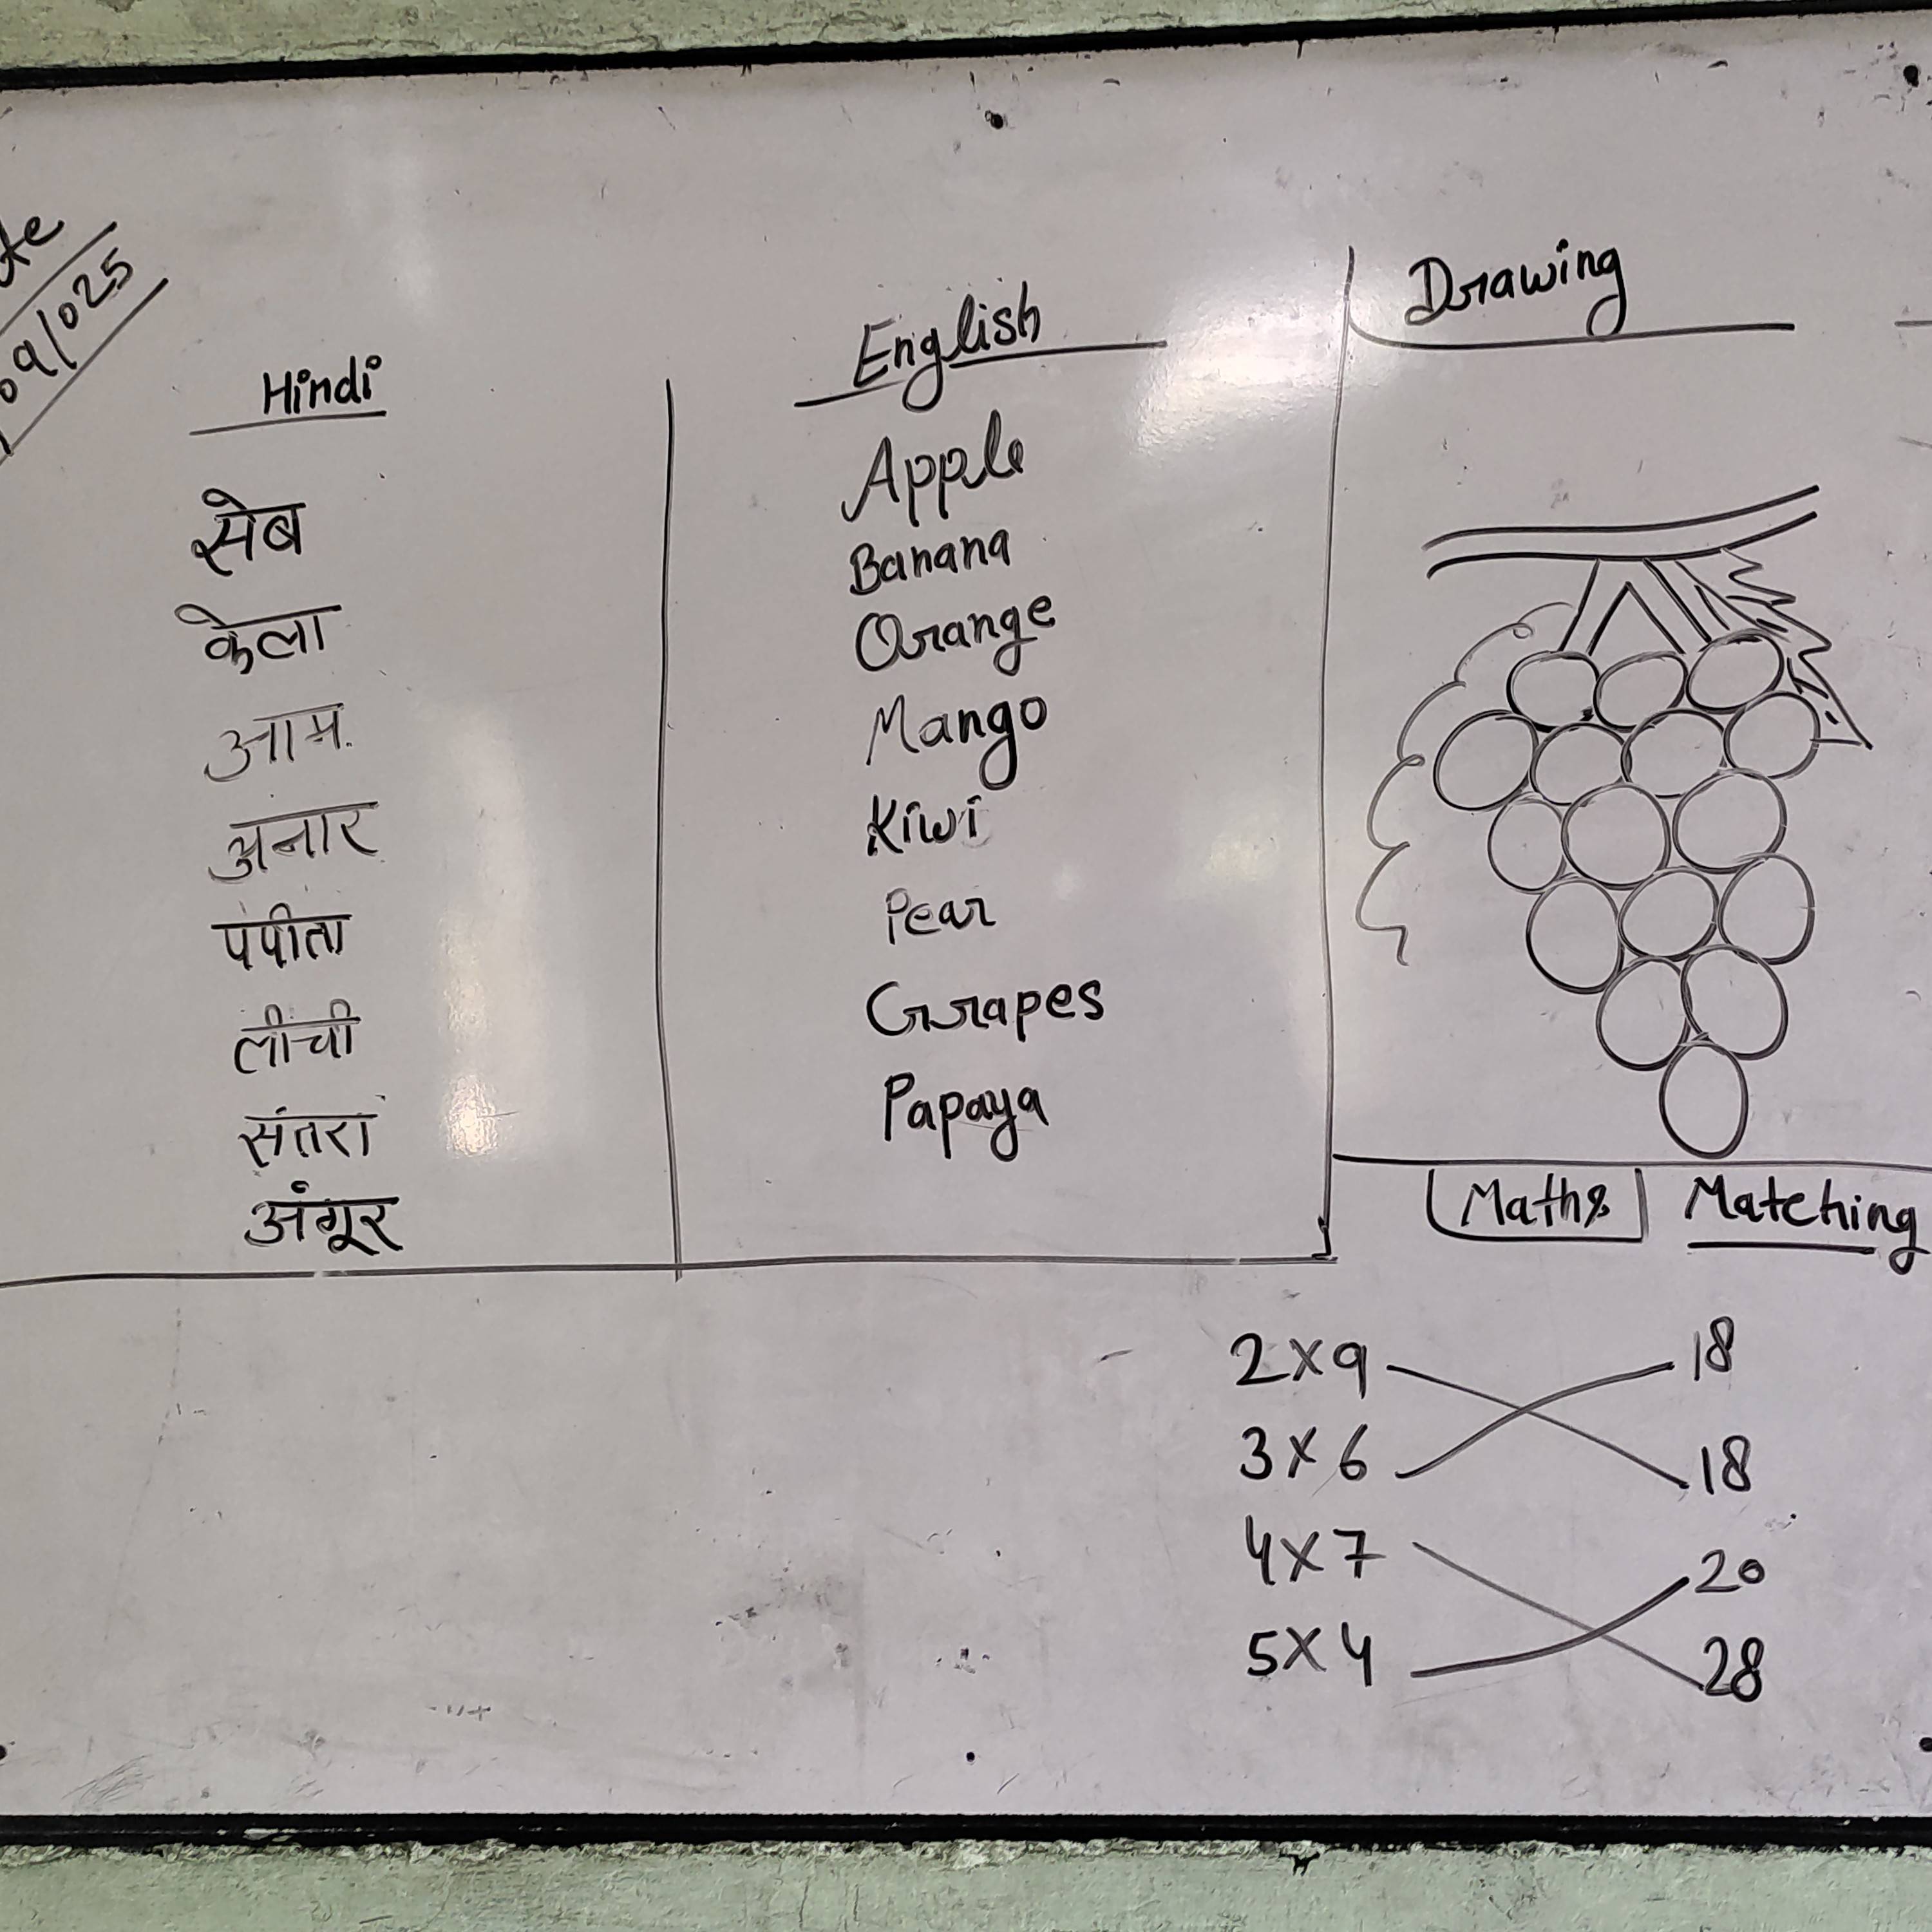 09/025
Hindi
सेब
केला
आम
अनार
पपीता
लीची
संतरा
अंगूर
English
Apple
Banana
Orange
Mango
Kiwi
Pear
Grapes
Papaya
Drawing
Maths Matching
2×9 18
3×6 18
4×7 20
5×4 28